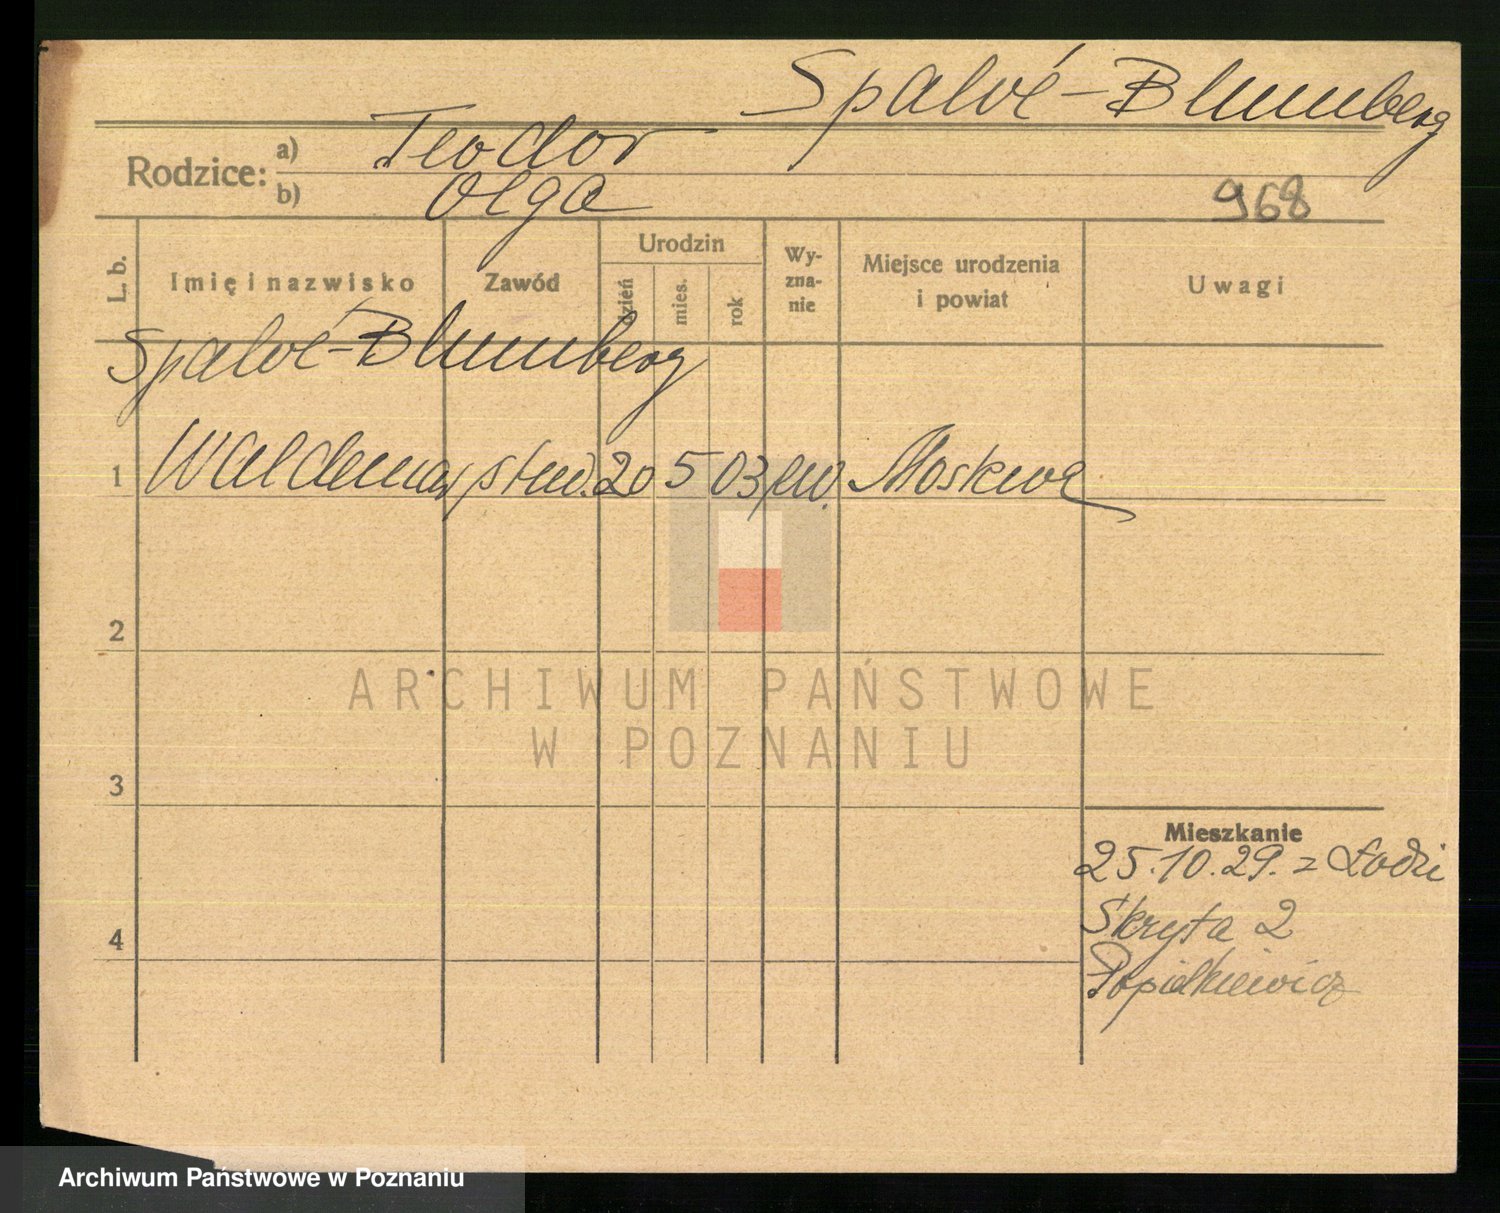 Spalvé-Blumberg
Rodzice: a) Teodor
b) Olga
968
L. b. Imię i nazwisko Zawód Urodzin dzień mies. rok Wyznanie Miejsce urodzenia i powiat Uwagi
Spalvé-Blumberg
1 Waldemar stud. 20 5 03 Moskwa
2
ARCHIWUM PAŃSTWOWE
W POZNANIU
3
Mieszkanie
25.10.29. z Łodzi
4 Skryta 2
Popielkiewicz
Archiwum Państwowe w Poznaniu